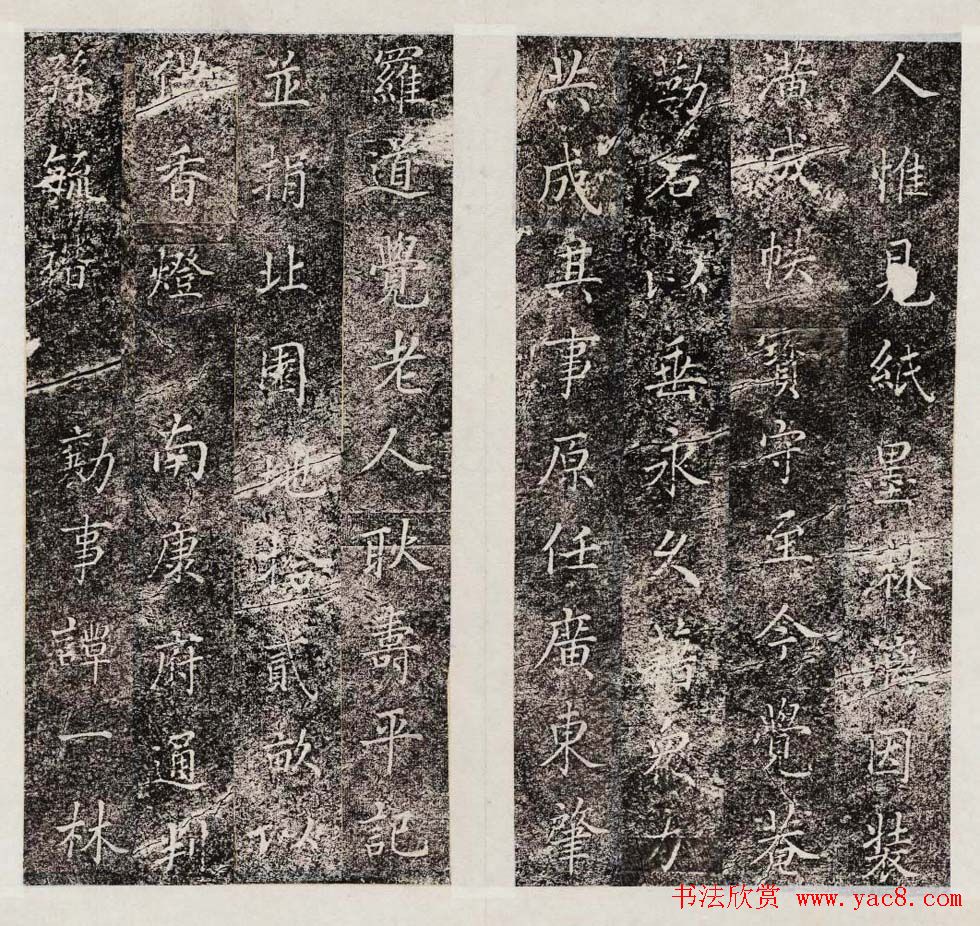 人惟見紙墨蒜漶因装
潢成帙寳守至今覺菴
勒石以垂永久首衆力
共成其事原任廣東肇
羅道覺老人耿壽平記
並捐北園地拾貳畝以
供香燈南康府通判
孫毓 勷事譚一林
书法欣赏 www.yac8.com